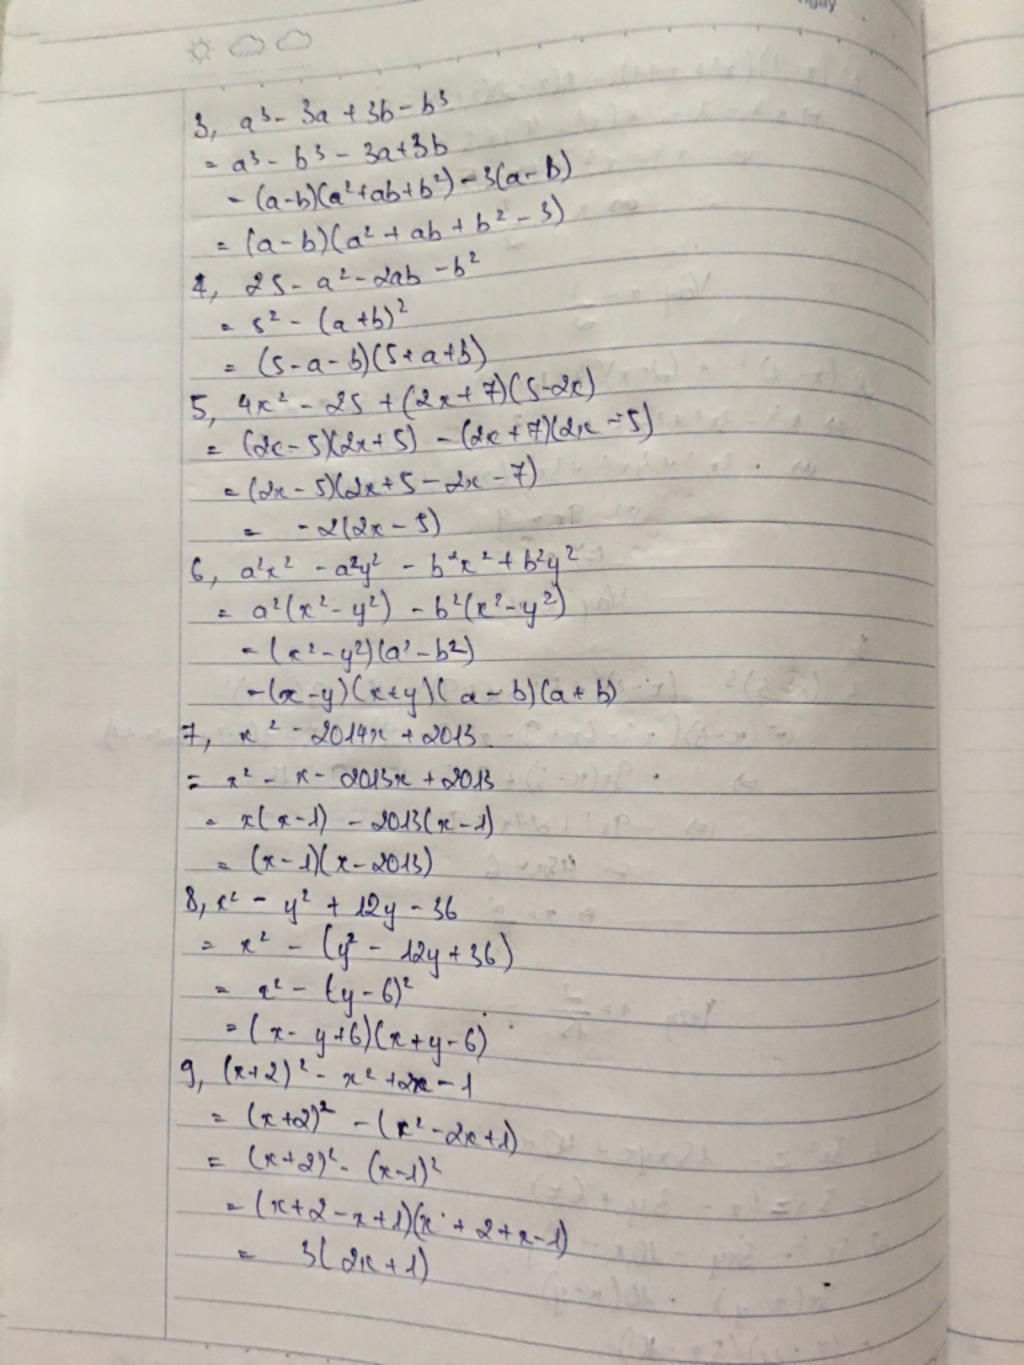 3, a³ - 3a + 3b - b³
= a³ - b³ - 3a + 3b
= (a-b)(a² + ab + b²) - 3(a - b)
= (a - b)(a² + ab + b² - 3)
4, 25 - a² - 2ab - b²
= 5² - (a + b)²
= (5 - a - b)(5 + a + b)
5, 4x² - 25 + (2x + 7)(5 - 2x)
= (2x - 5)(2x + 5) - (2x + 7)(2x - 5)
= (2x - 5)(2x + 5 - 2x - 7)
= -2(2x - 5)
6, a²x² - a²y² - b²x² + b²y²
= a²(x² - y²) - b²(x² - y²)
= (x² - y²)(a² - b²)
= (x - y)(x + y)(a - b)(a + b)
7, x² - 2014x + 2013
= x² - x - 2013x + 2013
= x(x - 1) - 2013(x - 1)
= (x - 1)(x - 2013)
8, x² - y² + 12y - 36
= x² - (y² - 12y + 36)
= x² - (y - 6)²
= (x - y + 6)(x + y - 6)
9, (x + 2)² - x² + 2x - 1
= (x + 2)² - (x² - 2x + 1)
= (x + 2)² - (x - 1)²
= (x + 2 - x + 1)(x + 2 + x - 1)
= 3(2x + 1)